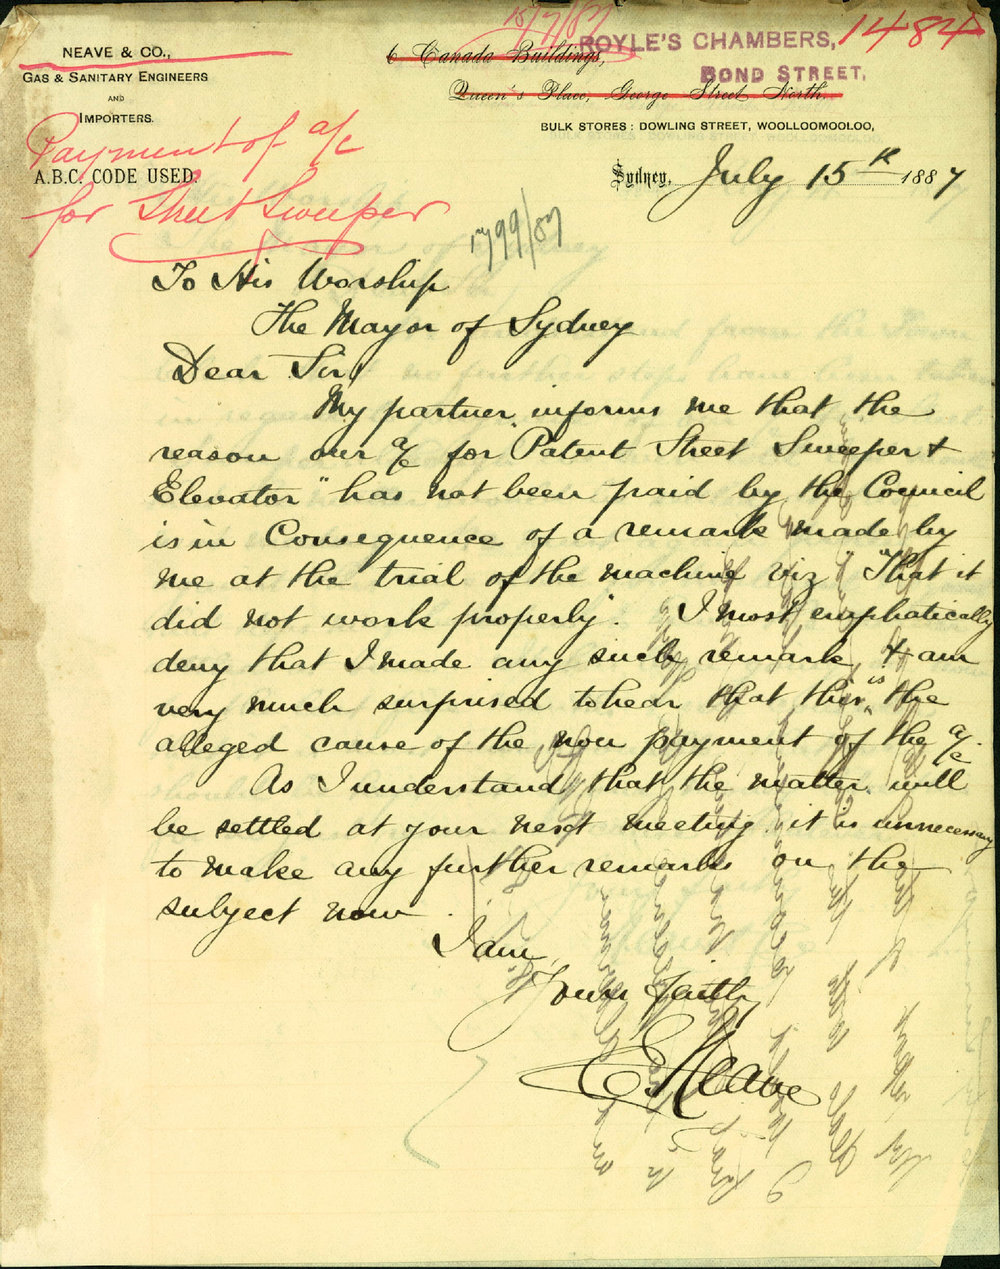 15/7/87
1484
NEAVE & CO.,
GAS & SANITARY ENGINEERS
AND
IMPORTERS.
A.B.C. CODE USED.
6 Canada Buildings,
Queen's Place, George Street North.
ROYLE'S CHAMBERS,
BOND STREET,
BULK STORES: DOWLING STREET, WOOLLOOMOOLOO,
Payment of a/c
for Street Sweeper
Sydney, July 15th 1887
1799/87
To His Worship
The Mayor of Sydney
Dear Sir
My partner informs me that the
reason our a/c for "Patent Street Sweeper &
Elevator" has not been paid by the Council
is in Consequence of a remark made by
me at the trial of the machine viz "That it
did not work properly". I most emphatically
deny that I made any such remark, & am
very much surprised to hear that this is the
alleged cause of the non payment of the a/c.
As I understand that the matter will
be settled at your next meeting it is unnecessary
to make any further remarks on the
subject now.
I am,
Yours faithly
E. Neave